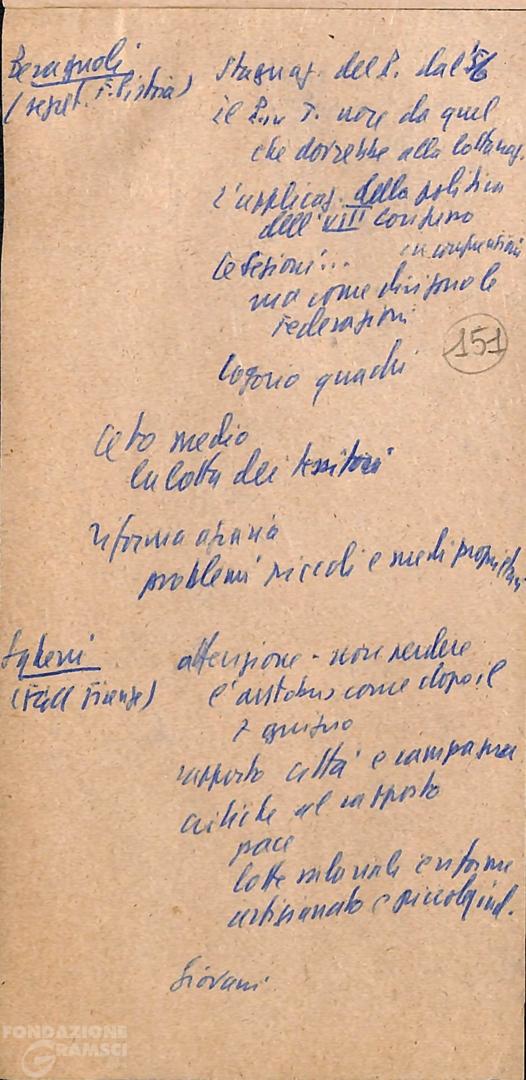 Beragnoli
(segret. F. Pistoia)
stagnaz. del P. dal '56
il P. in T. non da quel
che dovrebbe alla lotta naz.
l'applicaz. della politica
dell'VIII congresso
le sezioni...
ma come dirigono le
Federazioni
151
logorio quadri
Ceto medio
la lotta dei
riforma agraria
problemi piccoli e medi proprietari
(Fed Firenze)
attenzione - non perdere
l'autobus come dopo il
7 giugno
rapporto città e campagna
critiche al rapporto
pace
lotte salariali e riforme
artigianato e piccola ind.
Giovani
FONDAZIONE
GRAMSCI